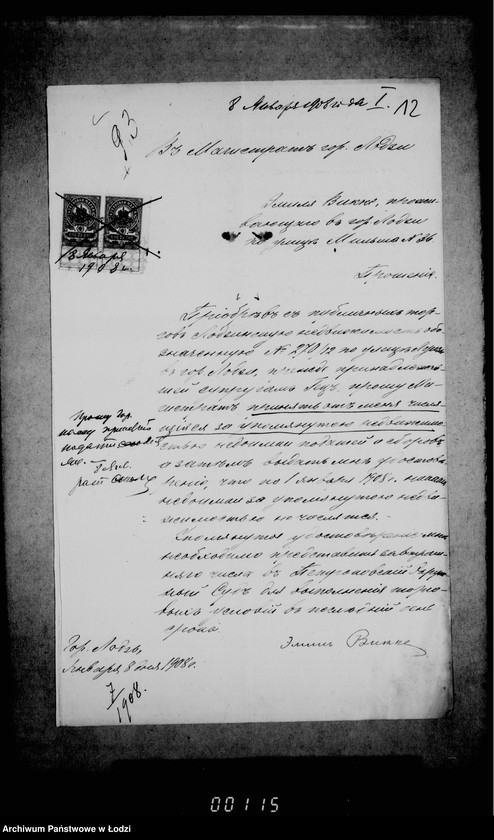 8 Января 1908 года I. 12
93
Въ Магистратъ гор. Лодзи
Эмиля Викке, прожи-
вающаго въ гор. Лодзи
по улицѣ Мильша № 26
Прошеніе.
8 Января
1908 г.
Пріобрѣвъ съ публичныхъ тор-
говъ Лодзинскую недвижимость обо-
значенную № 270/12 по улицѣ
въ гор. Лодзи, прежде принадлежав-
шей супругамъ прошу Ма-
гистратъ принять отъ меня числя-
щіяся за упомянутою недвижимо-
стью недоимки податей и сборовъ
а затѣмъ выдать мнѣ удостовѣ-
реніе, что по 1 Января 1908 г. никакія
недоимки за упомянутою недви-
жимостью не числятся.
Упомянутое удостовѣреніе мнѣ
необходимо представить завтраш-
няго числа въ Петроковскій Окруж-
ный Судъ для выполненія торго-
выхъ условій въ послѣдній день
срока.
Эмиль Викке
Прошу Гор.
подати
Гор. Лодзь,
Января 8 дня 1908 г.
7/1908.
00115
Archiwum Państwowe w Łodzi